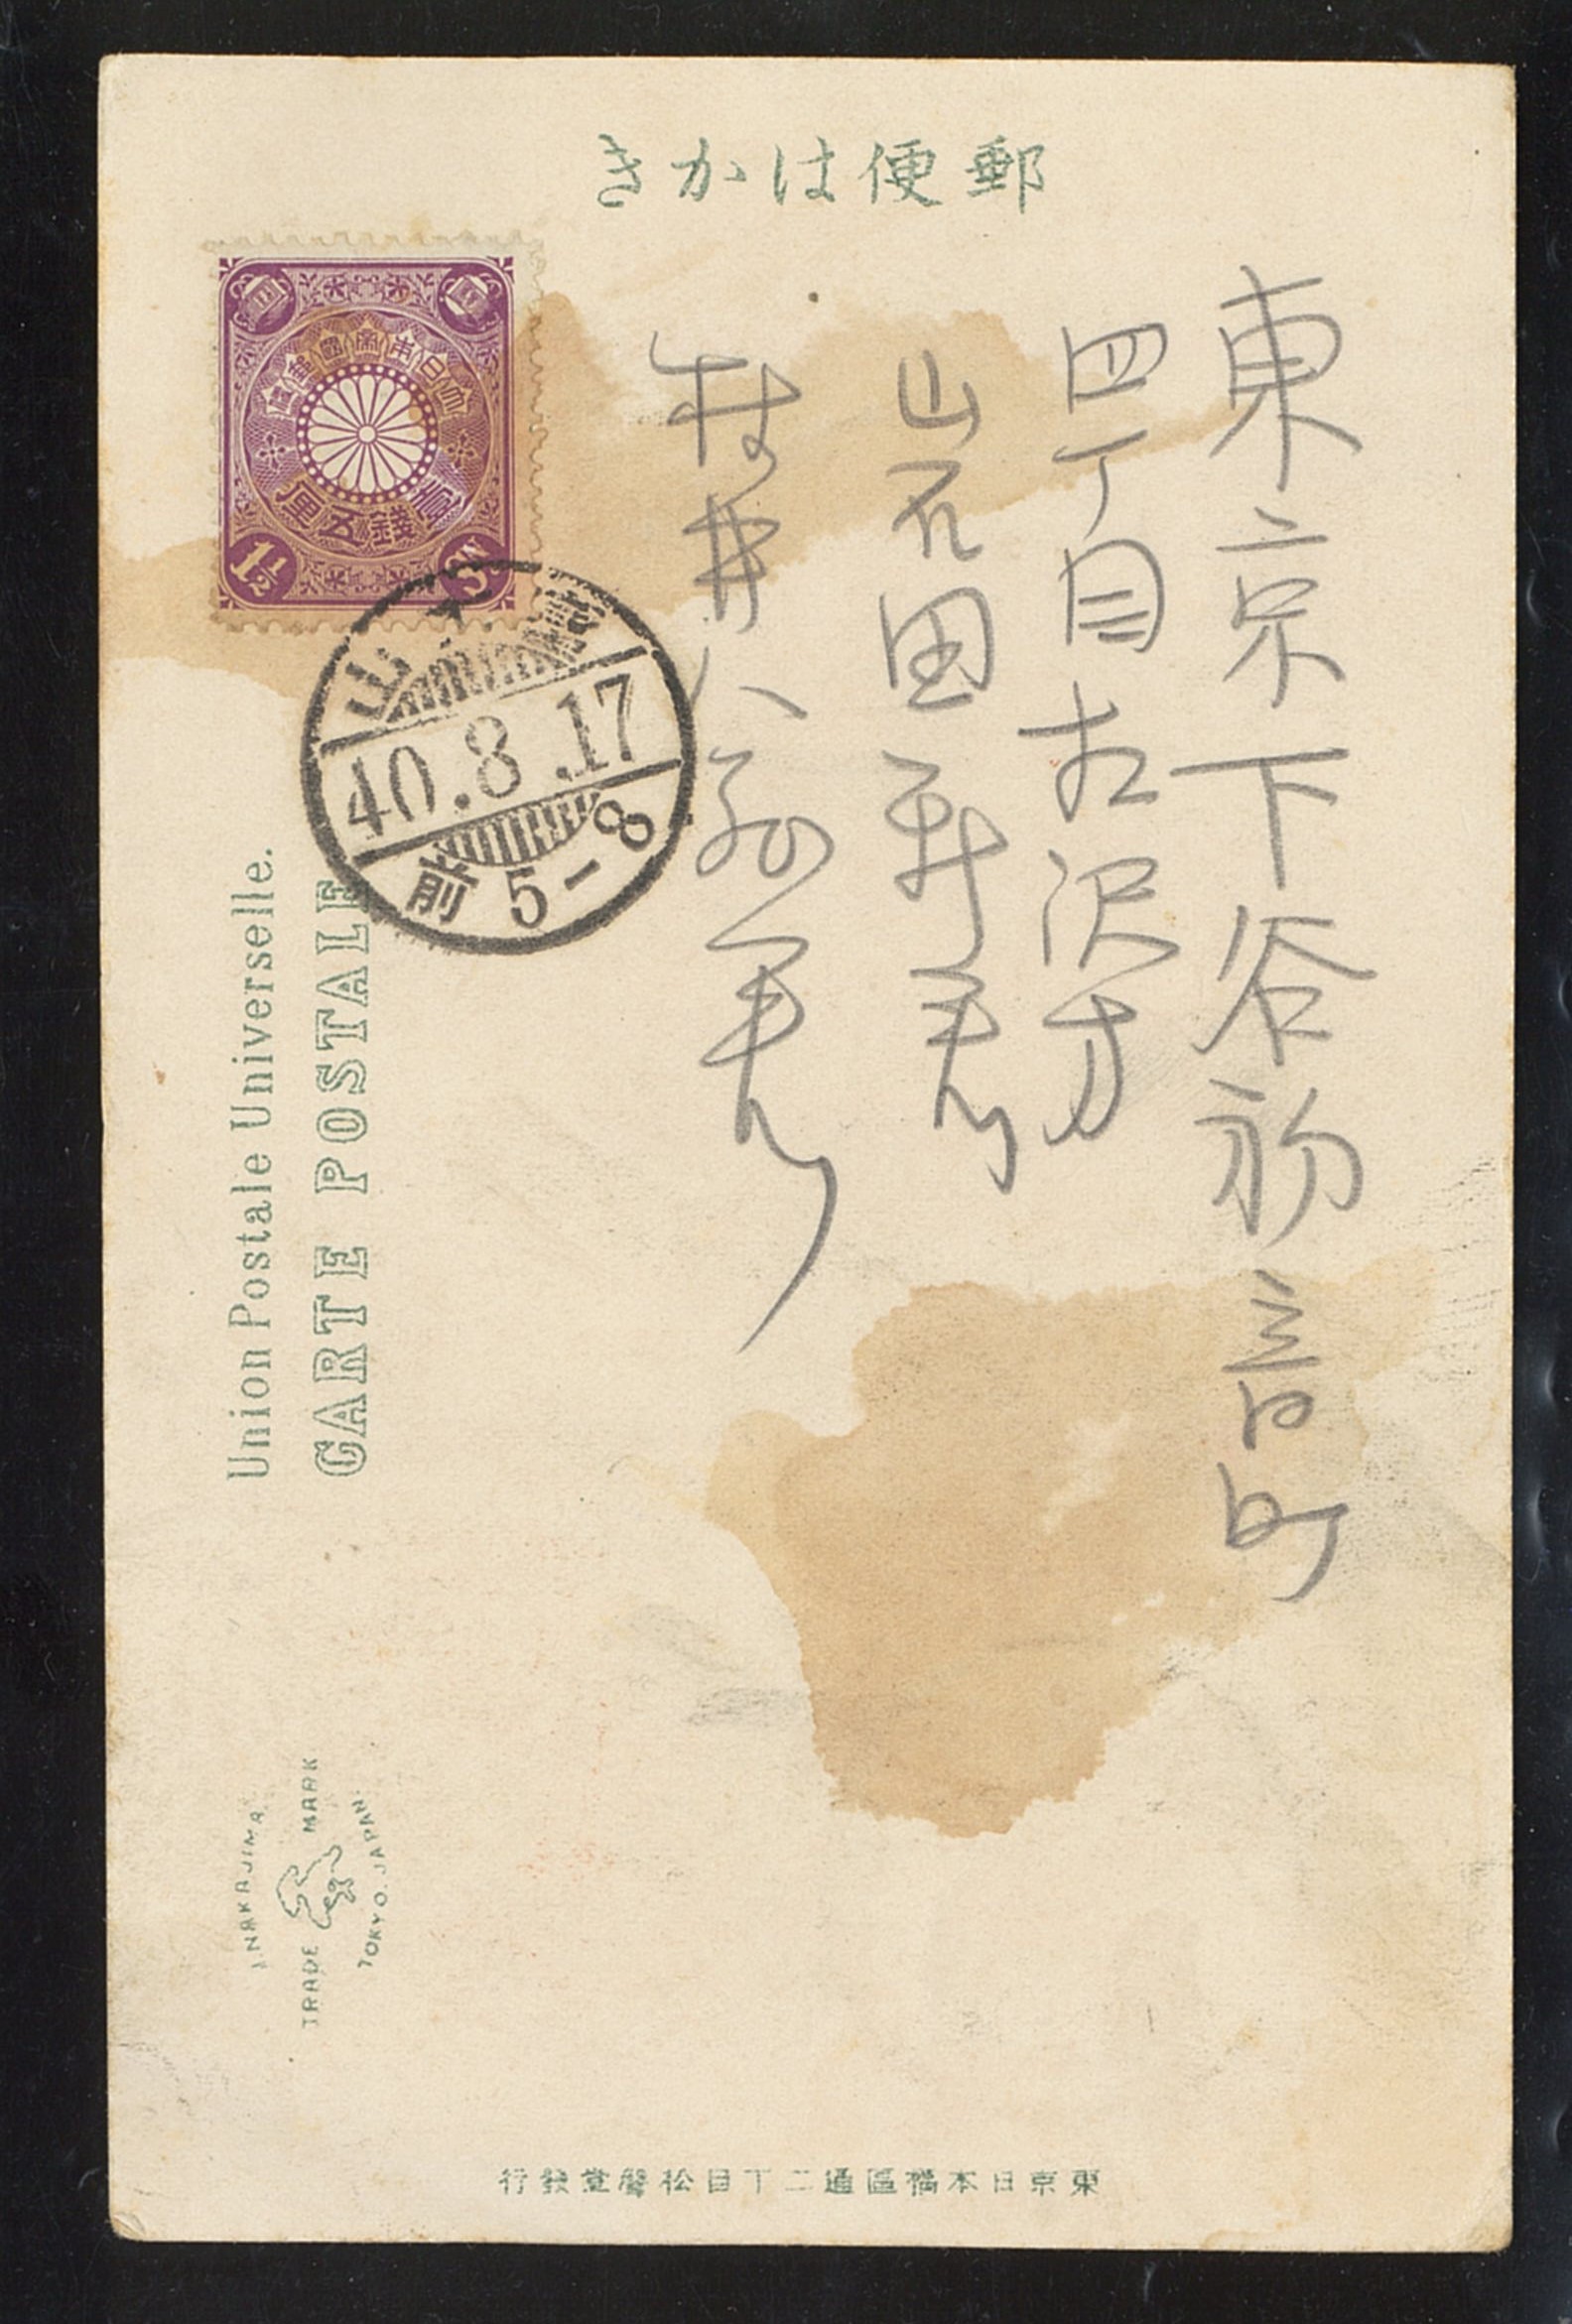 郵便はかき
東京下谷初音町
四丁目古沢方
山石田新君
村井八郎君
大日本帝國郵便
壹錢五厘
1½ Sn
山
40.8.17
前5-8
Union Postale Universelle.
CARTE POSTALE
NAKAJIMA
TRADE MARK
TOKYO. JAPAN.
東京日本橋區通二丁目松聲堂發行